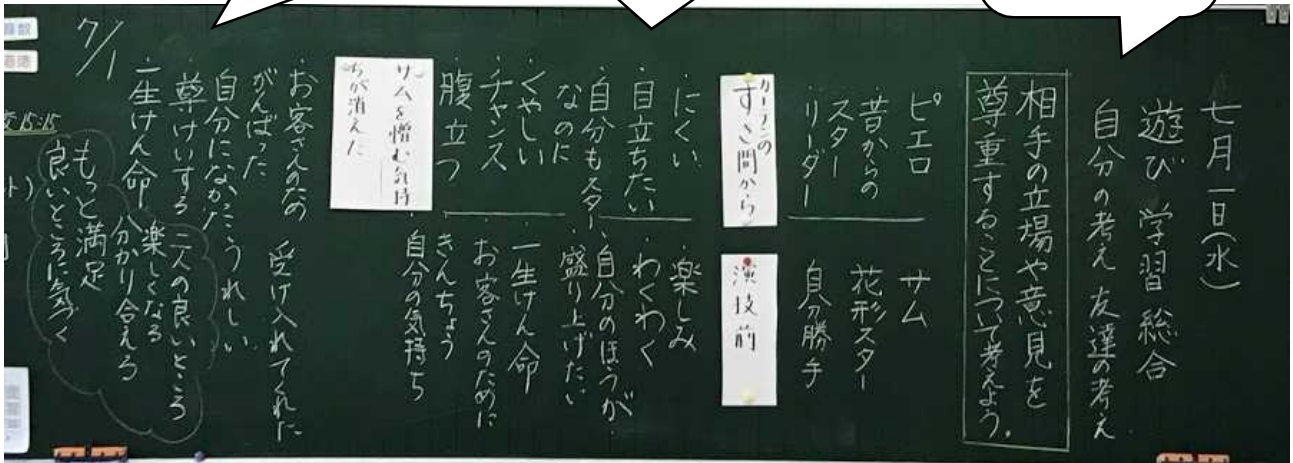 七月一日(水)
遊び 学習 総合
自分の考え 友達の考え
相手の立場や意見を
尊重することについて考えよう。
ピエロ
昔からの
スター
リーダー
サム
花形スター
自分勝手
カーテンの
すき間から
演技前
・にくい
・目立ちたい
・自分もスター
なのに
・くやしい
・チャンス
・腹立つ
・楽しみ
・わくわく
・自分のほうが
盛り上げたい
・一生けん命
・お客さんのために
・きんちょう
・自分の気持ち
サムを憎む気持
ちが消えた
・お客さんのため
がんばった
・自分になかった
・尊けいする
・一生けん命
受け入れてくれた
うれしい
二人の良いところ
楽しくなる
分かり合える
もっと満足
良いところに気づく
7/1
15:15